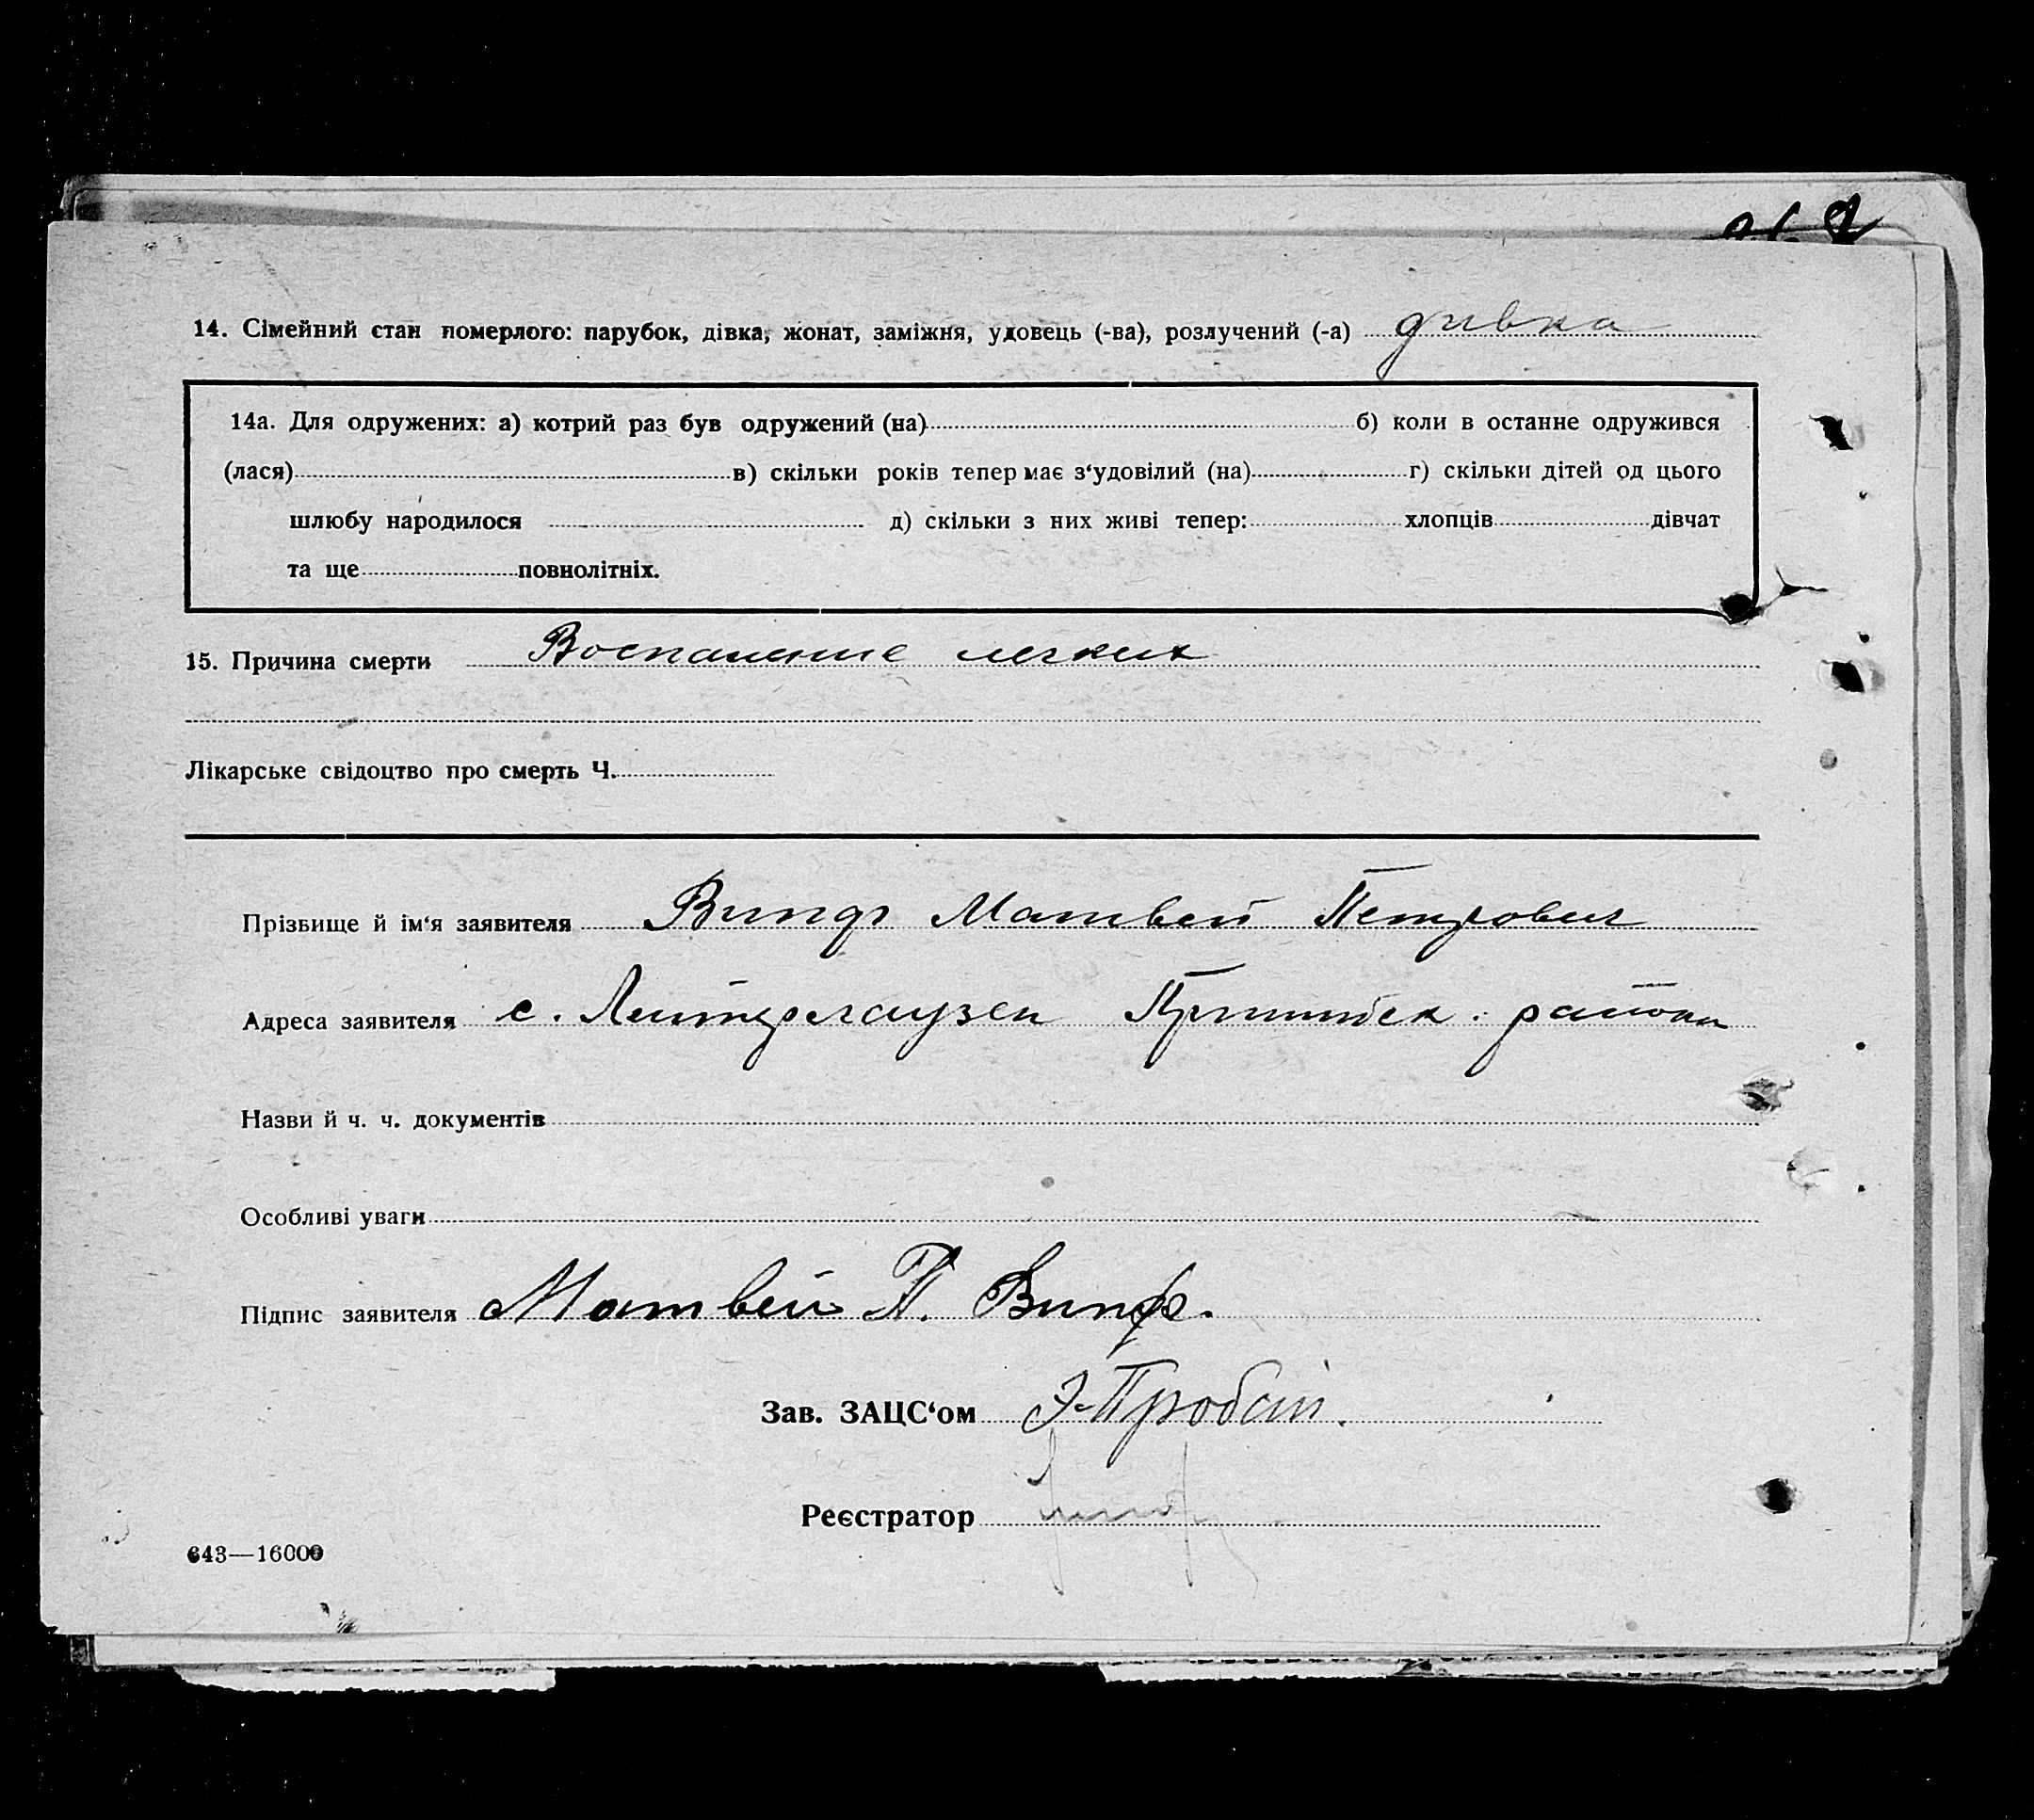 14. Сімейний стан померлого: парубок, дівка, жонат, заміжня, удовець (-ва), розлучений (-а) дивка
14а. Для одружених: а) котрий раз був одружений (на) б) коли в останнє одружився
(лася) в) скільки років тепер має з‘удовілий (на) г) скільки дітей од цього
шлюбу народилося д) скільки з них живі тепер: хлопців дівчат
та ще повнолітніх.
15. Причина смерти Воспаление легких
Лікарське свідоцтво про смерть Ч.
Прізвище й ім‘я заявителя Випф Матвей Петрович
Адреса заявителя с. Лейтерсгаузен Пришибск. района
Назви й ч. ч. документів
Особливі уваги
Підпис заявителя Матвей П. Випф.
Зав. ЗАЦС‘ом
Реєстратор
643—16000